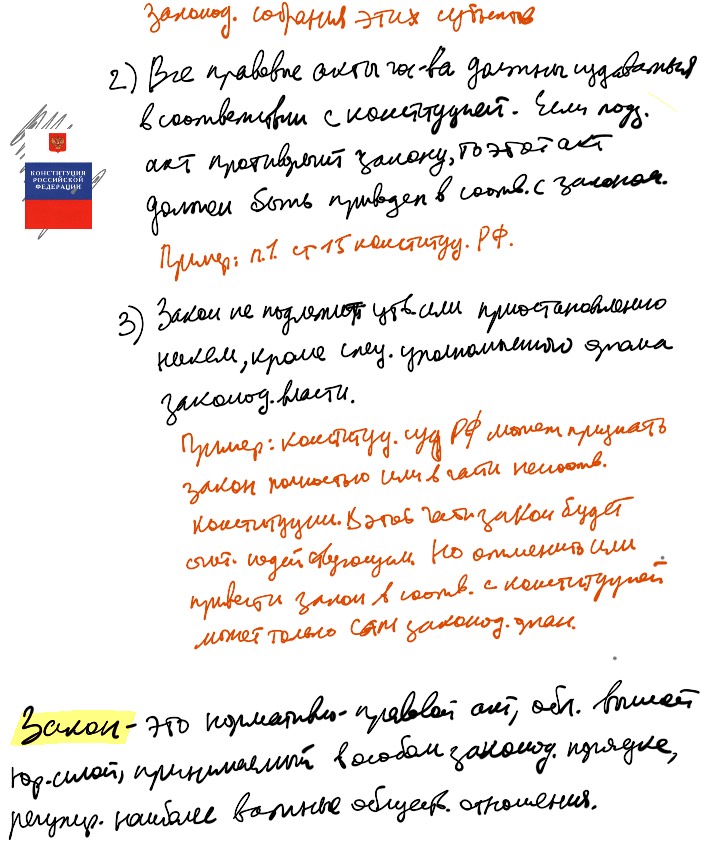 законод. собрания этих субъектов
2) Все правовые акты гос-ва должны издаваться
в соответствии с конституцией. Если подз.
КОНСТИТУЦИЯ
РОССИЙСКОЙ
ФЕДЕРАЦИИ
акт противоречит закону, то этот акт
должен быть приведен в соотв. с законом.
Пример: п.1. ст 15 конституц. РФ.
3) Закон не подлежит утв. или приостановлению
никем, кроме спец. уполномоченного органа
законод. власти.
Пример: конституц. суд РФ может признать
закон полностью или в части несоотв.
конституции. В этой части закон будет
счит. недействующим. Но отменить или
привести закон в соотв. с конституцией
может только САМ законод. орган.
Закон - это нормативно-правовой акт, обл. высшей
юр. силой, принимаемый в особом законод. порядке,
регулир. наиболее важные обществ. отношения.